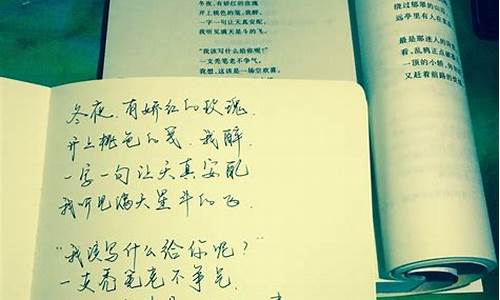 冬夜，有娇红的玫瑰
开上桃色的笺，我醉，
一字一句让天真安配
我听见满天星斗的飞，
“我该写什么给你呢？”
一支秃笔老不争气，
我想，这该是一场空欢喜。
绕过郁翠的山
远亭里有人在
最是那迷人的
看，乱鸦正点
一顶的小轿，
又赶着前路的
冬夜，有娇红的玫瑰
开上桃色的笺，我醉
一字一句让天真安配
我听见满天星斗的飞
“我该写什么给你呢？”
一支秃笔老不争气